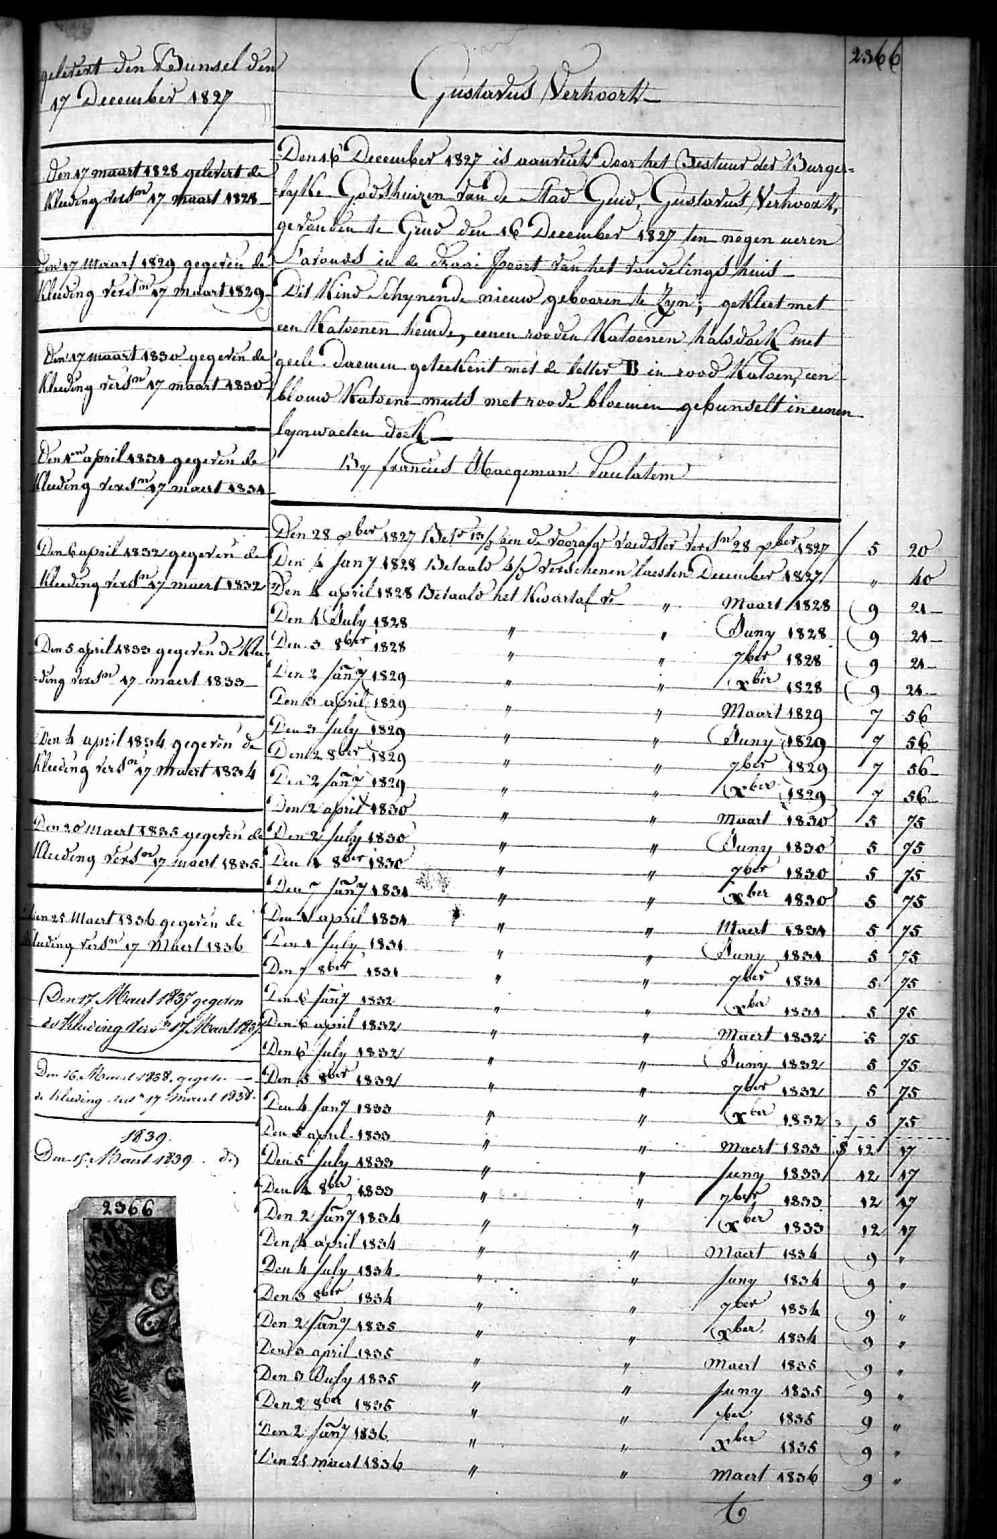 2366
Gustavus Verhoork
gelevert den Bunsel den
17 December 1827
Den 17 maart 1828 gelevert de
Kleeding versn 17 maart 1828
Den 17 Maart 1829 gegeven de
Kleeding versn 17 maart 1829
Den 17 maart 1830 gegeven de
Kleeding versn 17 maart 1830
Den 1en april 1831 gegeven de
Kleeding versn 17 maert 1831
Den 6 april 1832 gegeven de
Kleeding versn 17 maert 1832
Den 5 april 1833 gegeven de Klee
-ding versn 17 maert 1833
Den 4 april 1834 gegeven de
Kleeding versn 17 maert 1834
Den 20 Maert 1835 gegeven de
Kleeding versn 17 maert 1835
Den 25 Maert 1836 gegeven de
Kleeding versn 17 Maert 1836
Den 17 Maert 1837 gegeven
de Kleeding versn 17 Maert 1837
Den 16 Maert 1838 gegeven
de Kleeding versn 17 Maert 1838
1839.
Den 15 Maert 1839 . do
2366
Den 16 December 1827 is aanveird door het Bestuur der Burger=
=lyke Godshuizen van de stad Gend, Gustavus Verhoork,
gevonden te Gend den 16 December 1827 ten negen ueren
s'avonds in de draai poort van het vondelings huis
Dit Kind schynende nieuw gebooren te zyn; gekleet met
een Katoenen hemde, eenen rooden Katoenen halsdoek met
geele daemen geteekent met de letter B in rood Katoen, een
blouw Katoene muts met roode bloemen gebunselt in eenen
lynwaeten doek
By francies Haegeman Paulatem
Den 28 xber 1827 de voorafge voedster versn 28 xber 1827 5 20
Den 4 Jany 1828 Betaald verschenen laesten December 1827 " 40
Den 4 april 1828 Betaald het Kwartal v " Maart 1828 9 21
Den 1 July 1828 " " Juny 1828 9 21
Den 3 8ber 1828 " " 7ber 1828 9 21
Den 2 Jany 1829 " " xber 1828 9 21
Den 3 april 1829 " " Maart 1829 7 56
Den 3 July 1829 " " Juny 1829 7 56
Den 2 8ber 1829 " " 7ber 1829 7 56
Den 2 Jany 1829 " " xber 1829 7 56
Den 2 april 1830 " " maart 1830 5 75
Den 2 July 1830 " " Juny 1830 5 75
Den 1 8ber 1830 " " 7ber 1830 5 75
Den 7 Jany 1831 " " xber 1830 5 75
Den 1 april 1831 " " Maert 1831 5 75
Den 1 July 1831 " " Juny 1831 5 75
Den 7 8ber 1831 " " 7ber 1831 5 75
Den 6 Jany 1832 " " xber 1831 5 75
Den 6 april 1832 " " Maert 1832 5 75
Den 6 July 1832 " " Juny 1832 5 75
Den 5 8ber 1832 " " 7ber 1832 5 75
Den 4 Jany 1833 " " xber 1832 5 75
Den 5 april 1833 " " Maert 1833 12 17
Den 5 July 1833 " " Juny 1833 12 17
Den 4 8ber 1833 " " 7ber 1833 12 17
Den 2 Jany 1834 " " xber 1833 12 17
Den 4 april 1834 " " Maert 1834 9 "
Den 4 July 1834 " " Juny 1834 9 "
Den 3 8ber 1834 " " 7ber 1834 9 "
Den 2 Jany 1835 " " xber 1834 9 "
Den 3 april 1835 " " Maert 1835 9 "
Den 3 July 1835 " " Juny 1835 9 "
Den 2 8ber 1835 " " 7ber 1835 9 "
Den 2 Jany 1836 " " xber 1835 9 "
Den 25 maert 1836 " " Maert 1836 9 "